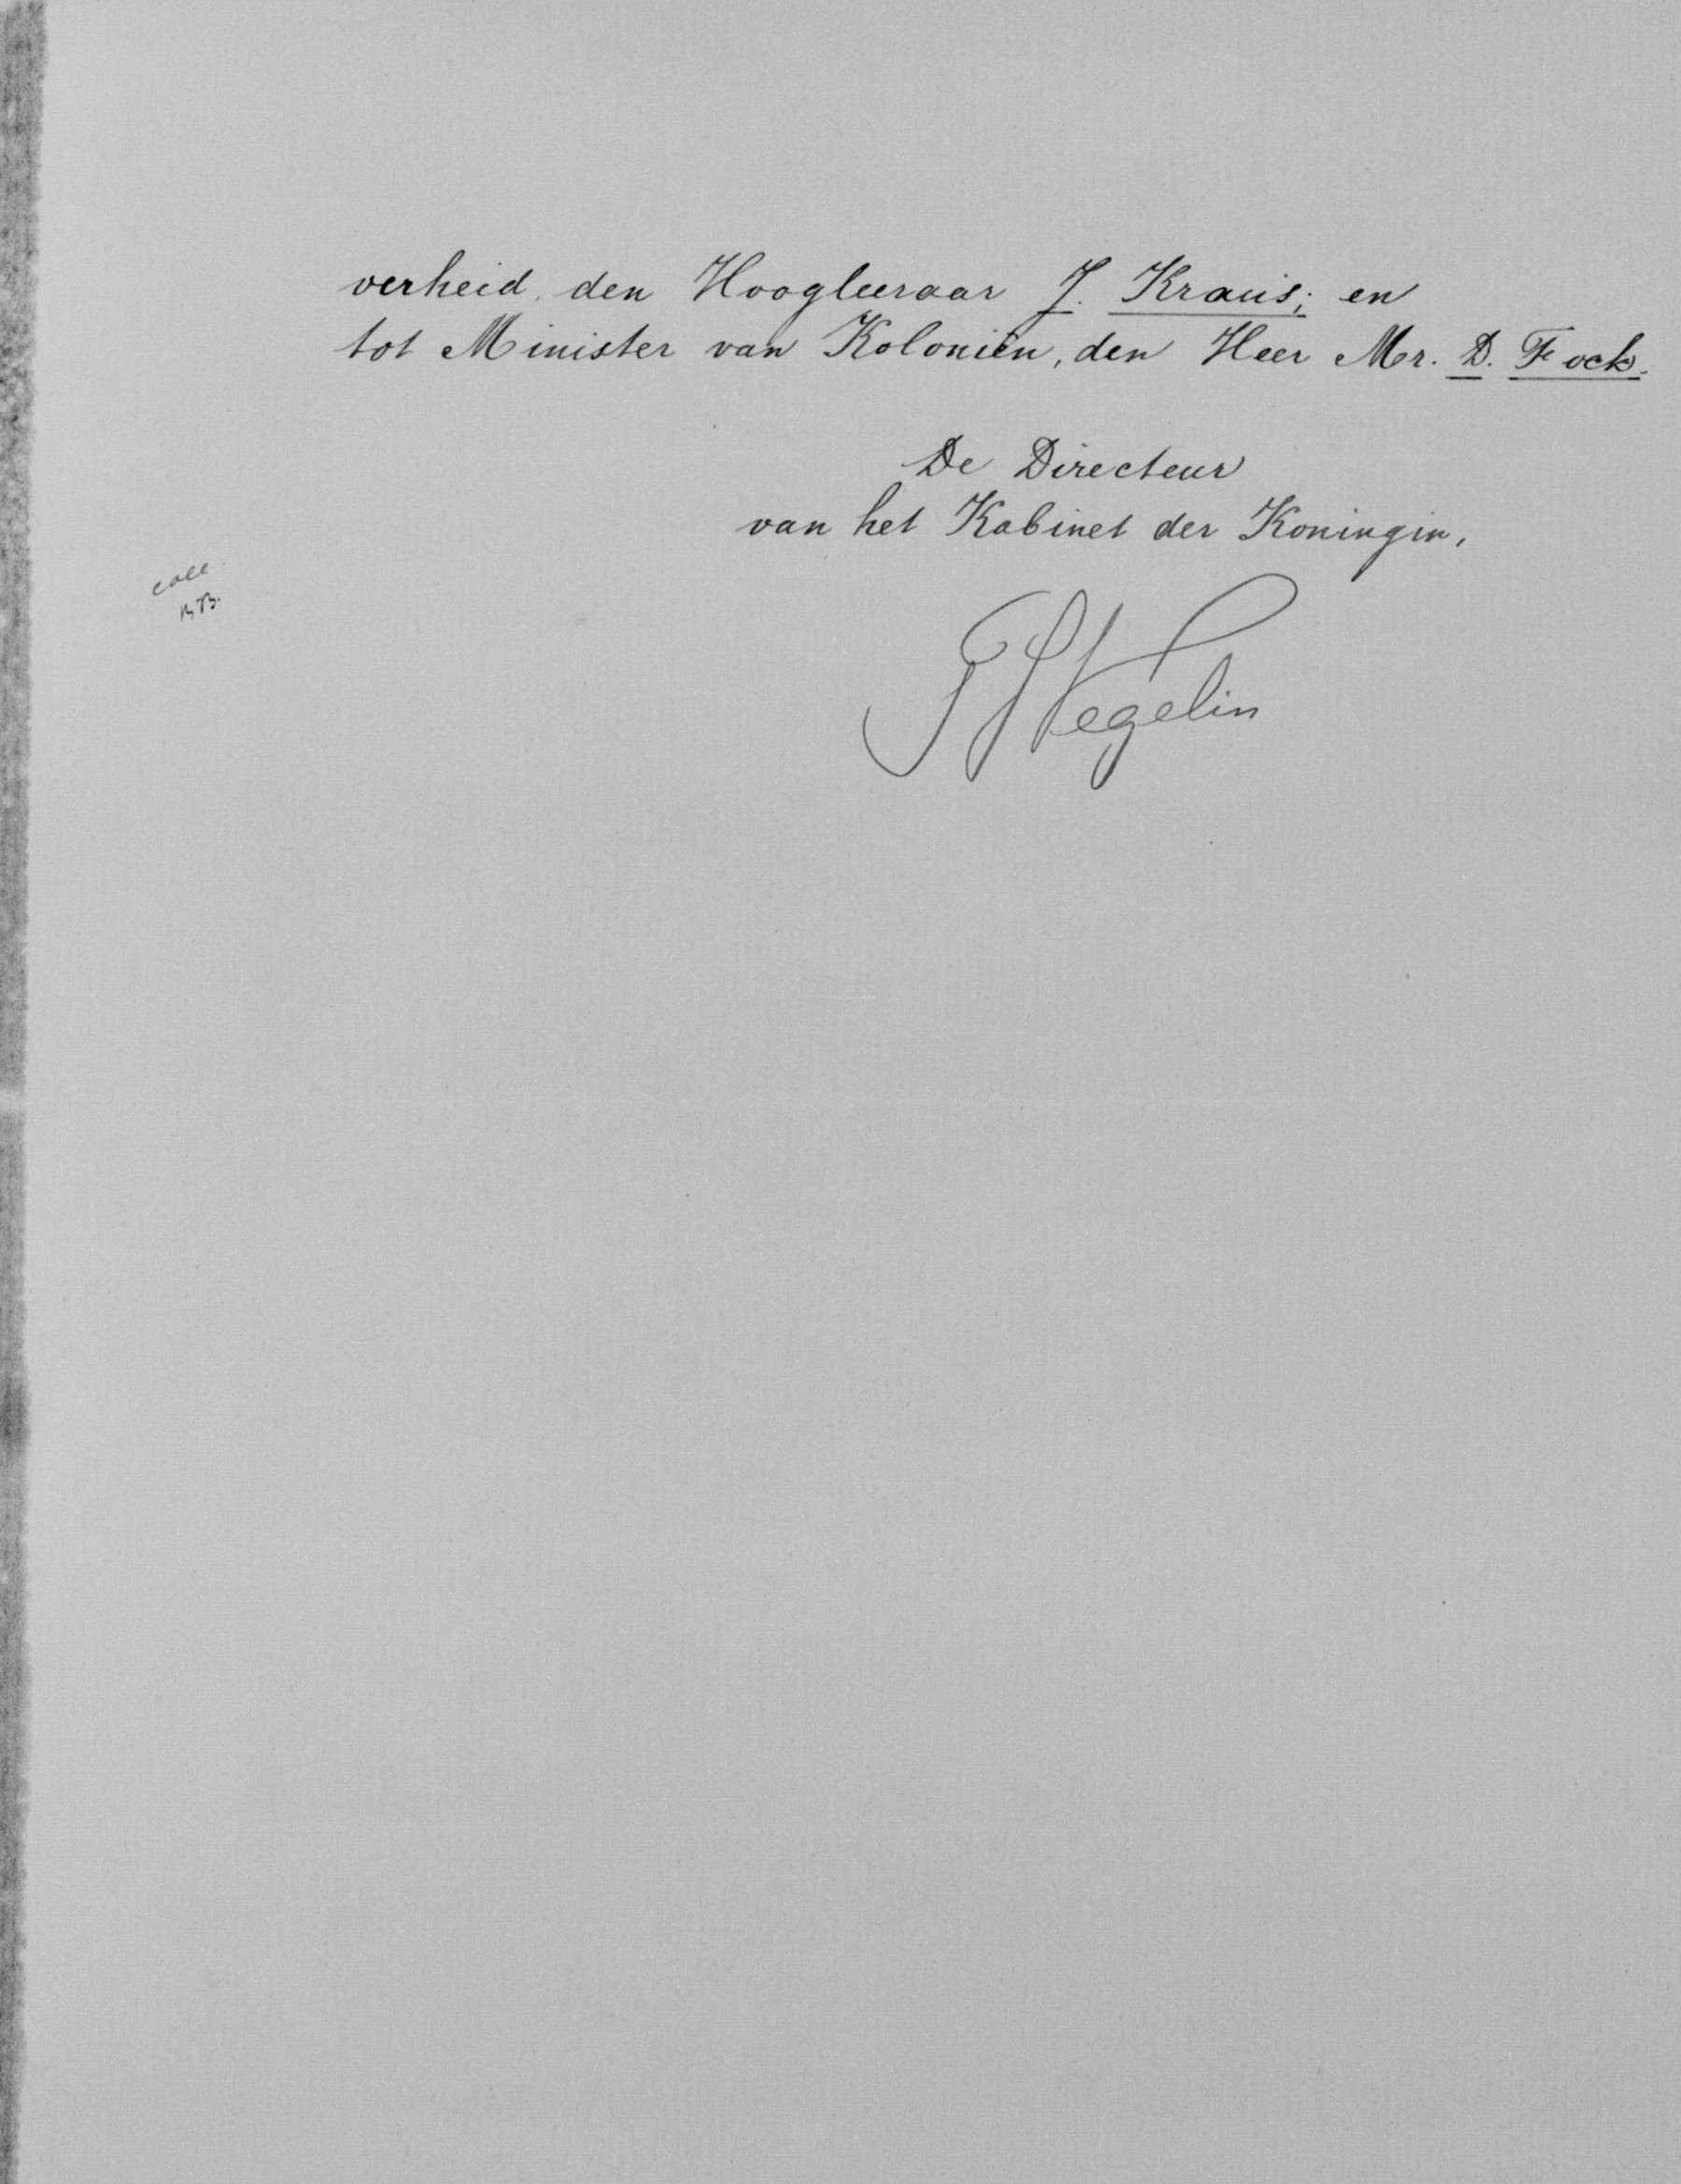 verheid, den Hoogleeraar J. Kraus; en
tot Minister van Koloniën, den Heer Mr. D. Fock.
De Directeur
van het Kabinet der Koningin,
coll.
Wegelin